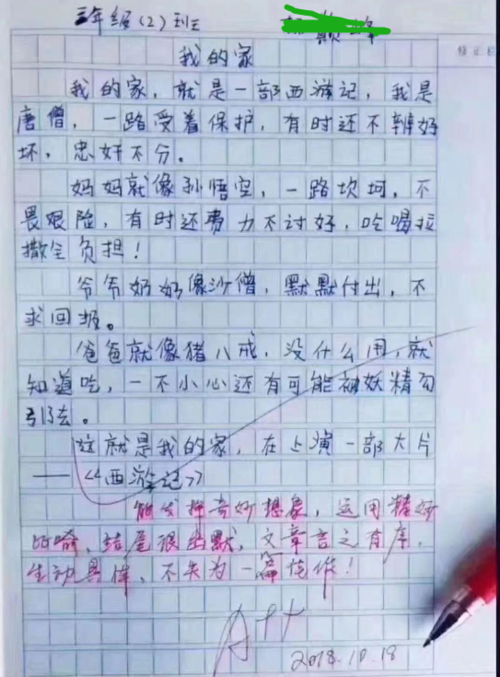 三年级(2)班
巅峰
我的家
我的家，就是一部西游记，我是
唐僧，一路受着保护，有时还不辨好
坏，忠奸不分。
妈妈就像孙悟空，一路坎坷，不
畏艰险，有时还费力不讨好，吃喝拉
撒全负担！
爷爷奶奶像沙僧，默默付出，不
求回报。
爸爸就像猪八戒，没什么用，就
知道吃，一不小心还有可能被妖精勾
引去。
这就是我的家，在上演一部大片
——《西游记》
能发挥奇妙想象，运用精妙
比喻，结尾很幽默，文章言之有序，
生动具体，不失为一篇佳作！
A++
2018.10.18